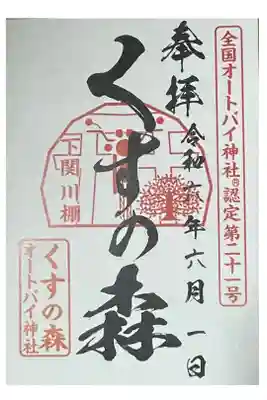 全国オートバイ神社®認定第二十一号
奉拝
令和六年六月一日
くすの森
下関川棚
くすの森
オートバイ神社